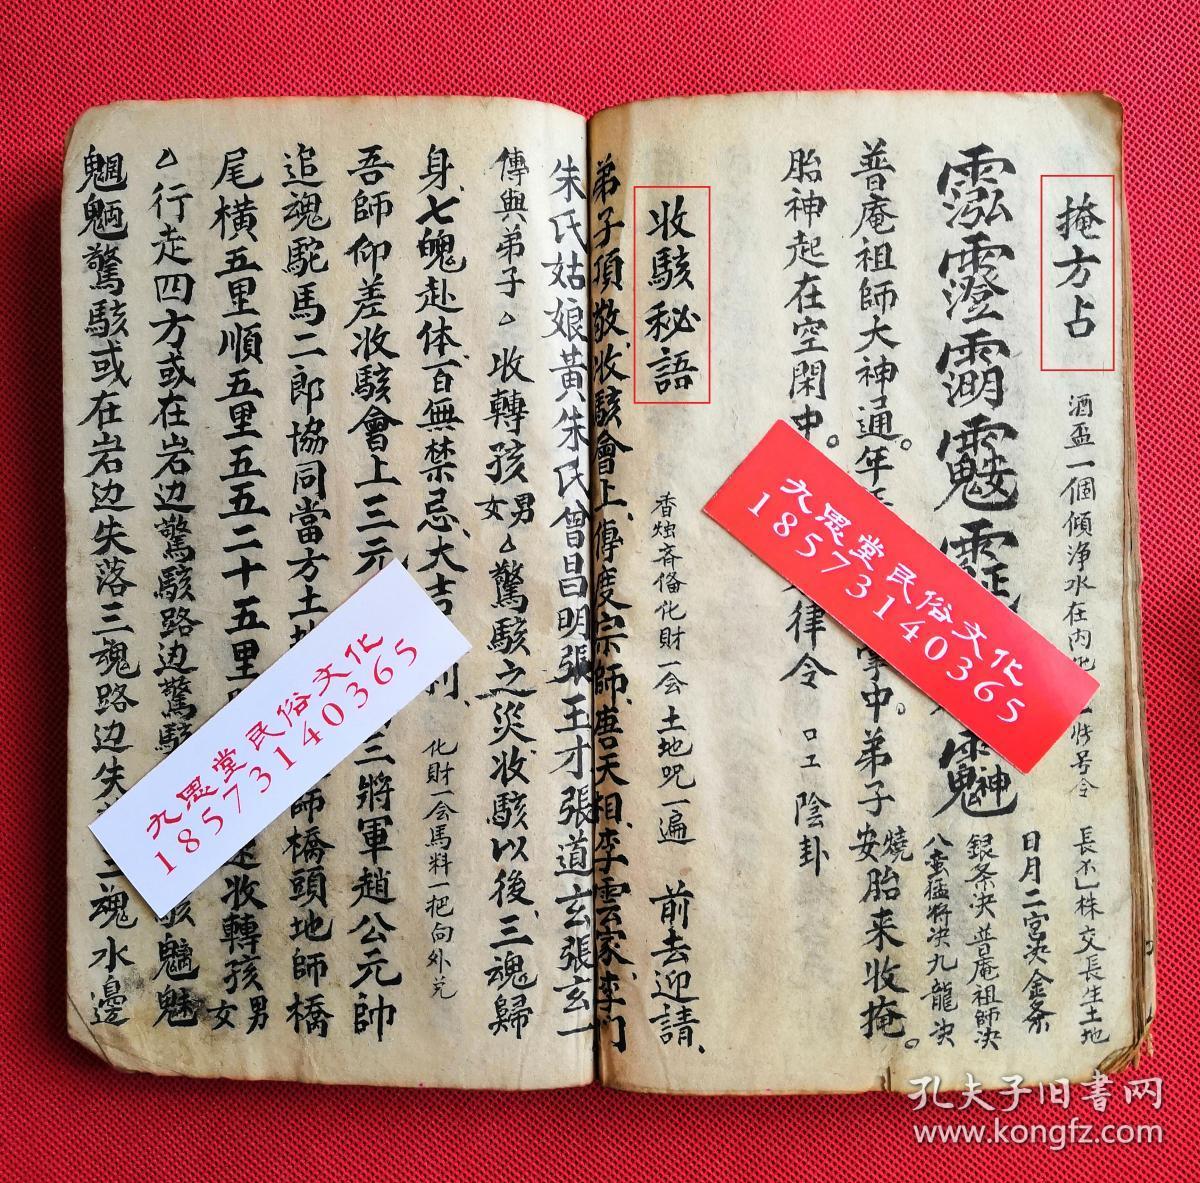 掩方占
酒盃一個傾净水在内
号令
長生土地
日月二宮決金条
銀条決普庵祖師決
八蛮猛将决九龍决
普庵祖師大神通。年
掌中。弟子
安胎来收掩。
燒
胎神起在空閑中。
律令
陰卦
收駭秘語
香烛斉俻化財一会土地呪一遍
前去迎請、
弟子頂敬收駭會上傳度宗師、唐天相、李雲家、李門
朱氏姑娘黄朱氏曾昌明張王才張道玄張玄一
傳與弟子△收轉孩男女△驚駭之災收駭以後、三魂歸
身、七魄赴体、百無禁忌、大吉
利
化財一会馬料一把向外兑
吾師仰差收駭會上三元
三將軍趙公元帥
追魂駝馬二郎協同當方土地
師橋頭地師橋
尾横五里順五里五五二十五里
收轉孩男女
△行走四方或在岩边驚駭路边驚駭
魑魅
魍魎驚駭或在岩边失落三魂路边失
三魂水邊
九思堂民俗文化
18573140365
九思堂民俗文化
18573140365
孔夫子旧书网
www.kongfz.com